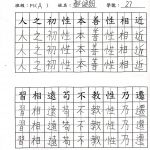 班級：M1(A) 姓名： 學號：27
人之初性本善性相近
人之初性本善性相近
人之初性本善性相近
人之初性本善性相近
習相遠苟不教性乃遷
習相遠苟不教性乃遷
習相遠苟不教性乃遷
習相遠苟不教性乃遷